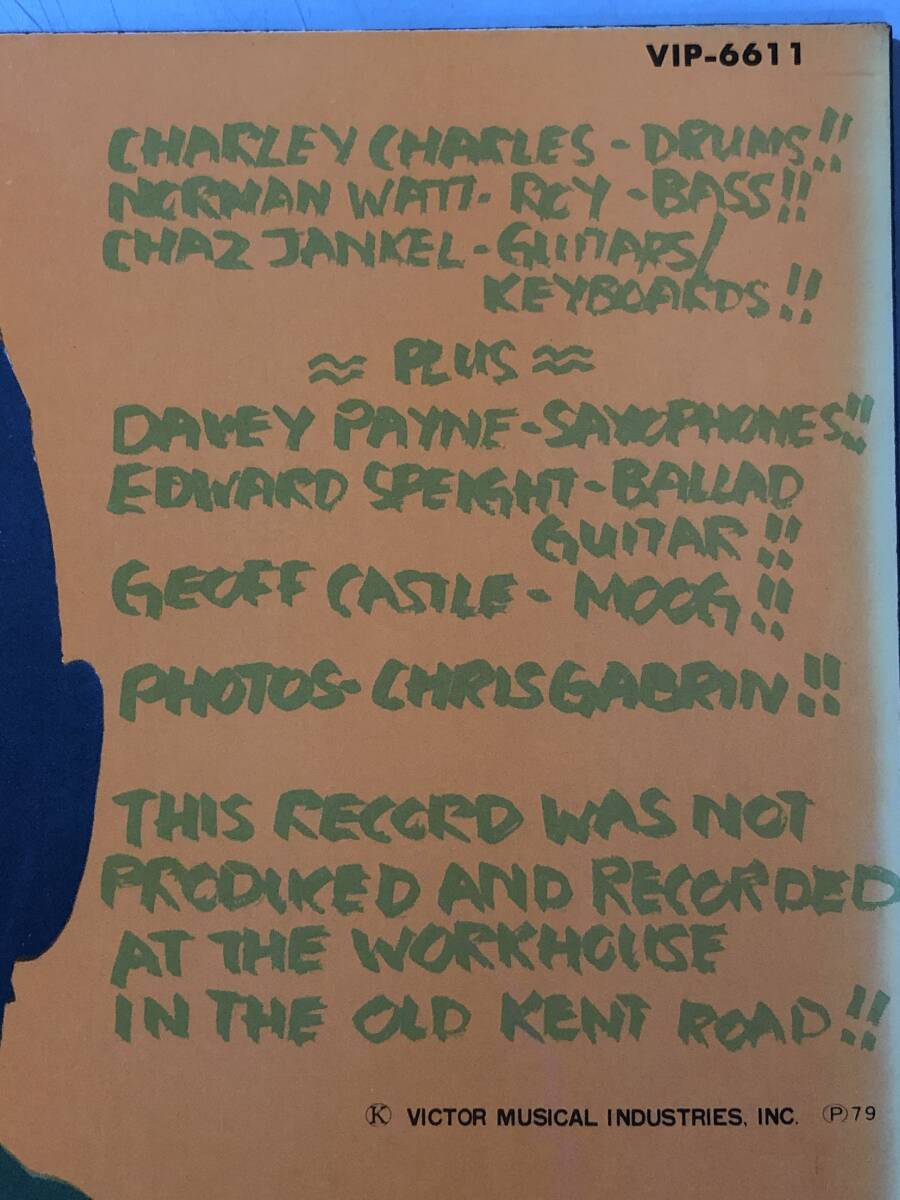 VIP-6611
CHARLEY CHARLES - DRUMS!!
NORMAN WATT-ROY - BASS!!
CHAZ JANKEL - GUITARS/
KEYBOARDS!!
≈ PLUS ≈
DAVEY PAYNE - SAXOPHONES!!
EDWARD SPEIGHT - BALLAD
GUITAR!!
GEOFF CASTLE - MOOG!!
PHOTOS - CHRIS GABRIN!!
THIS RECORD WAS NOT
PRODUCED AND RECORDED
AT THE WORKHOUSE
IN THE OLD KENT ROAD!!
Ⓚ VICTOR MUSICAL INDUSTRIES, INC. Ⓟ79